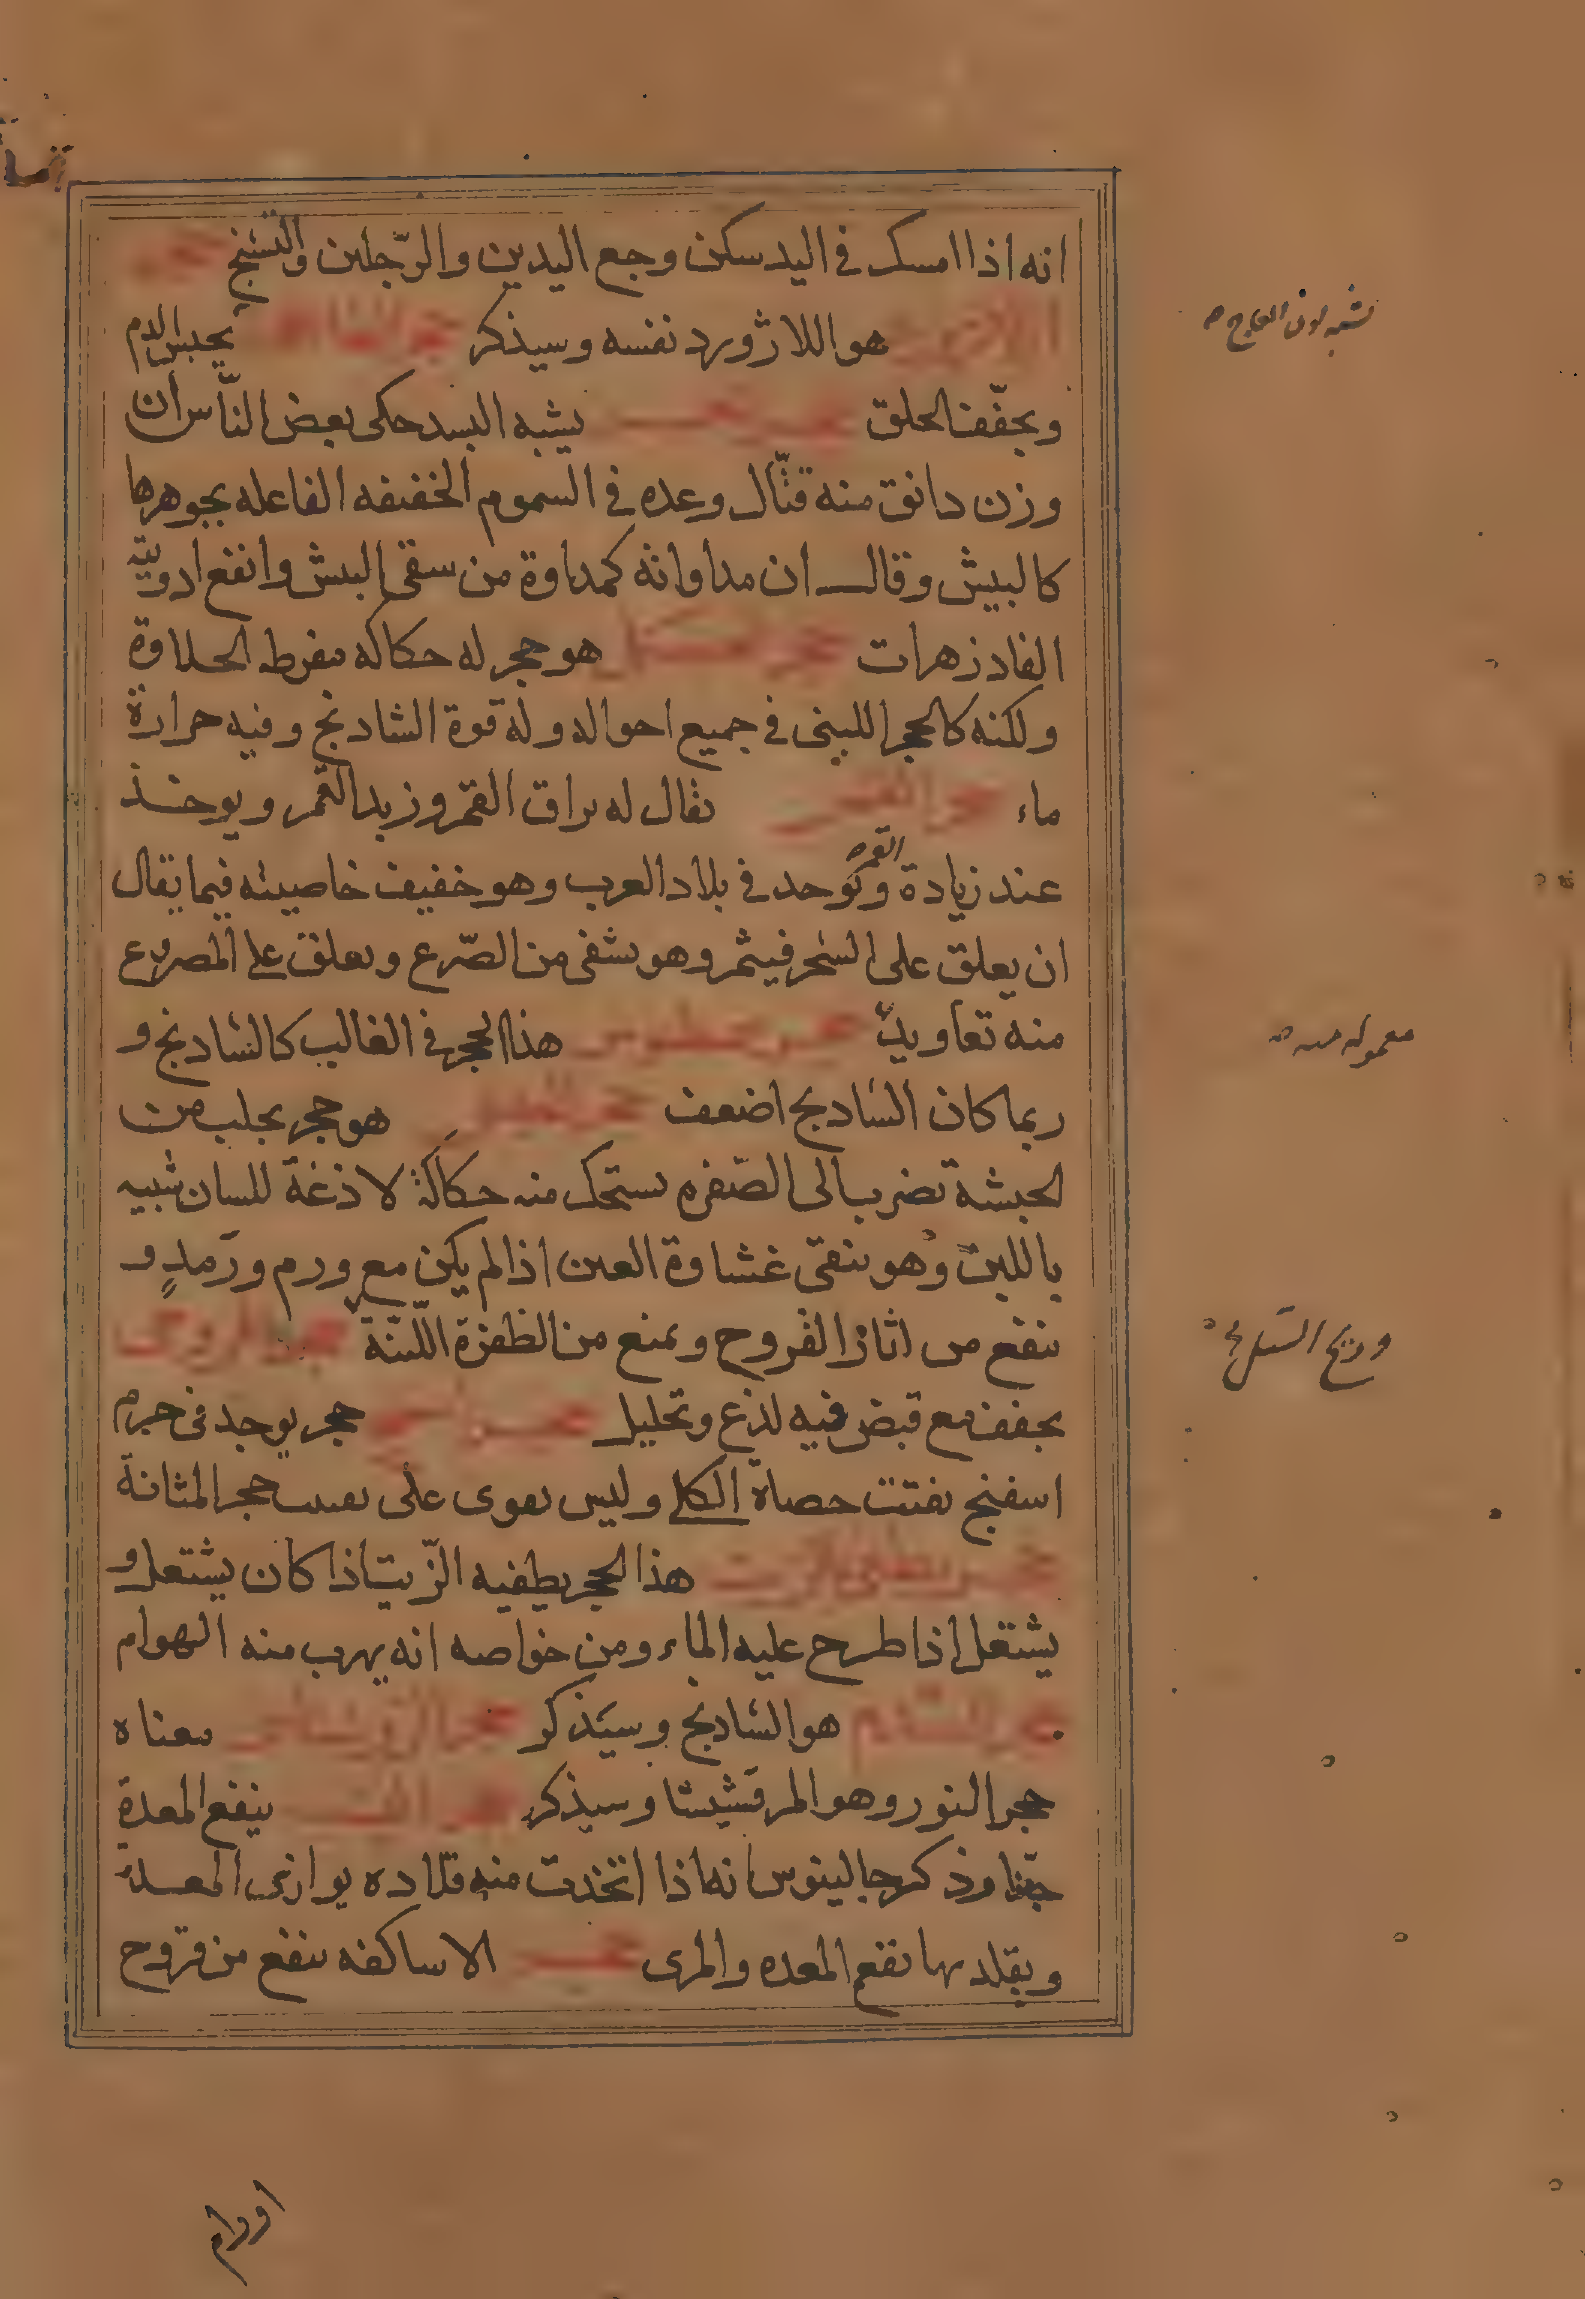 انه اذا امسك في اليد سكن وجع اليدين والرّجلين والتشنج
هو اللاژورد نفسه وسيذكر يحبس الدم
ويجفّف الحلق يشبه البسد حكى بعض النّاس أن
وزن دانق منه قتّال وعده في السموم الخفيفه الفاعله بجوهرها
كالبيش وقال ان مداواته كمداوة من سقى البيش وانفع ادويته
الفادزهرات حجر هو حجر له حكاكه مفرط الحلاوة
ولكنه كالحجر اللبنى في جميع احواله وله قوة الشادنج وفيه حرارة
ماء حجر القمر يقال له براق القمر وزبد القمر ويوخذ
عند زيادة القمر ويوجد في بلاد العرب وهو خفيف خاصيته فيما يقال
ان يعلق على الشجر فيثمر وهو يشفى من الصّرع ويعلق على المصروع
منه تعاويذ هذا الحجر في الغالب كالشادنج و
ربما كان الشادنج اضعف هو حجر يجلب من
الحبشة تضرب الى الصّفره يستحك منه حكاكة لاذغة للسان شبيه
باللبن وهو ينقى غشاوة العين اذا لم يكن مع ورم ورمد و
ينفع من اثار القروح ويمنع من الظفرة اللّينة
يجفف مع قبض فيه لذع وتحليل حجر يوجد في جرم
اسفنج يفتت حصاة الكلى وليس يقوى على تفتيت حجر المثانة
هذا الحجر يطفيه الزّيت اذا كان يشتعل و
يشتعل اذا طرح عليه الماء ومن خواصه انه يهرب منه الهوام
هو الشادنج وسيذكر معناه
حجر النور وهو المرقشيثا وسيذكر ينفع المعدة
جدّا وذكر جالينوس انه اذا اتخذت منه قلاده يوازى المعدة
ويقلد بها نفع المعده والمرى حجر الاساكفه ينفع من قروح
يشبه لون العاج
معموله منه
وريح السّبل
اورام